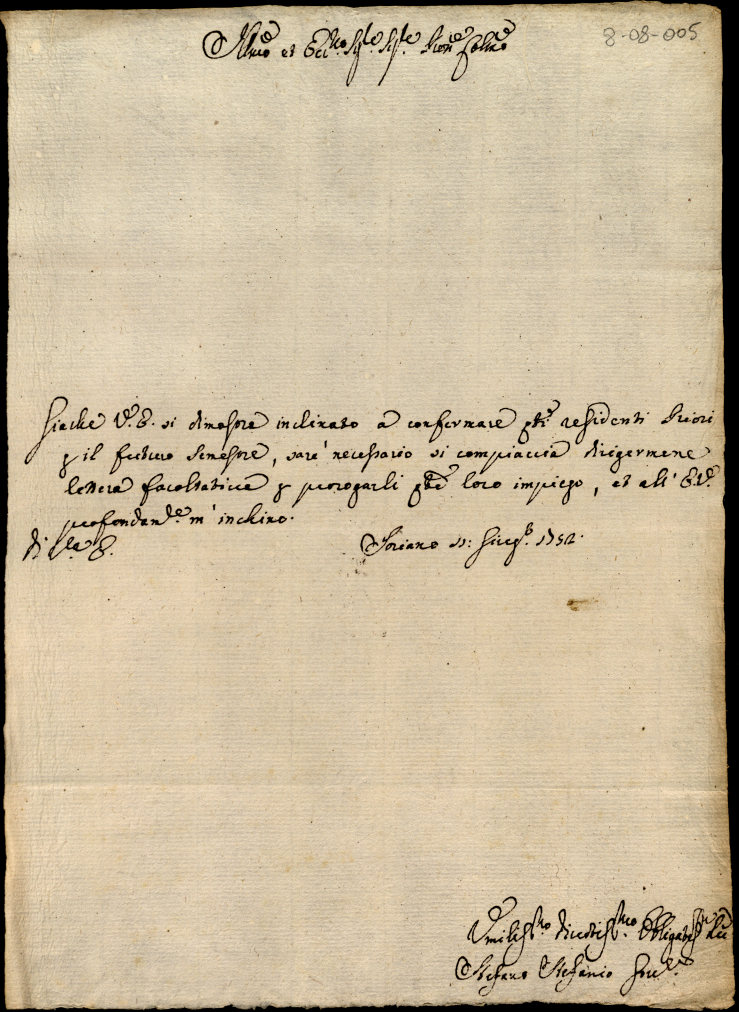 8-08-005
Illmo et Ecc.mo Sig.re Sig.re Pron.e Colmo
Giache V.E. si dimostra inclinato a confermare q.ti residenti Priori
p il futuro Semestre, sarà necessario si compiaccia dirigermene
lettera facoltativa p prorogarli q.to loro impiego, et all' E.V.
profondam.te m' inchino.
di V.ra E. Soriano 11: Giug.o 1752.
Umiliss.mo Divotiss.mo Obligatiss.mo
Stefano Stefanio